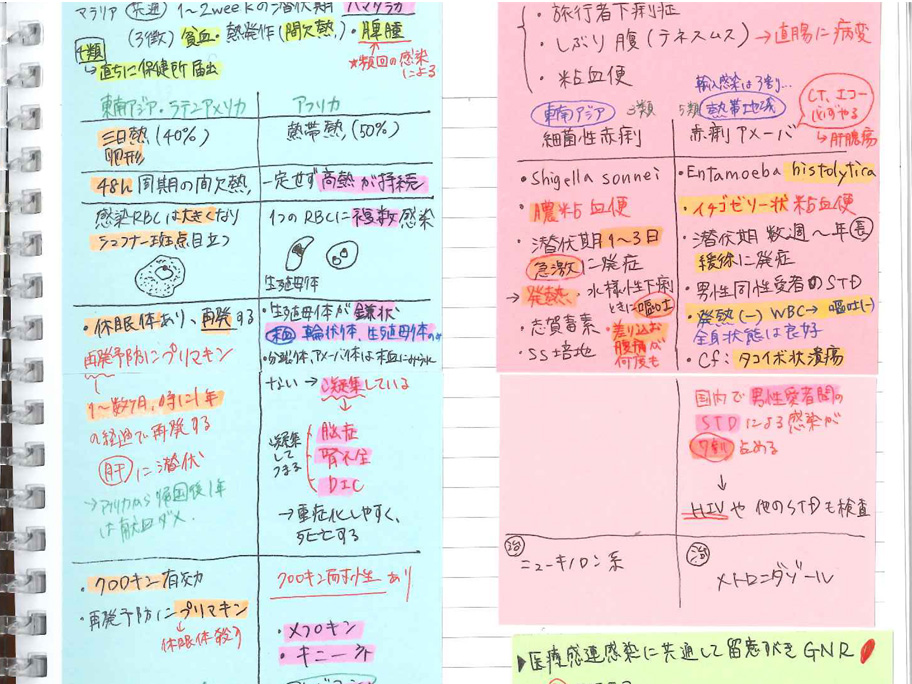 マラリア (共通) 1〜2weekの潜伏期 ハマダラカ
(3徴) 貧血・熱発作(間欠熱)・脾腫
4類
→直ちに保健所届出
★頻回の感染
による
東南アジア・ラテンアメリカ
三日熱 (40%)
卵形
48h 周期の間欠熱
感染RBCは大きくなり
シュフナー斑点目立つ
・休眠体あり、再発する
再発予防にプリマキン
1〜数ヶ月、時に1年
の経過で再発する
肝に潜伏
→アフリカから帰国後1年
は献血ダメ
・クロロキン有効
・再発予防にプリマキン
休眠体殺す
アフリカ
熱帯熱 (50%)
一定せず高熱が持続
1つのRBCに複数感染
生殖母体
・生殖母体が鎌状
末血 輪状体、生殖母体のみ
・分裂体、アメーバ体は末血にみられ
ない →凝集している
凝集
して
つまる
脳症
腎不全
DIC
→重症化しやすく、
死亡する
クロロキン耐性あり
・メフロキン
・キニーネ
・旅行者下痢症
・しぶり腹(テネスムス) →直腸に病変
・粘血便
輸入感染は3割…
東南アジア 3類
細菌性赤痢
・Shigella sonnei
・膿粘血便
・潜伏期1〜3日
急激に発症
→発熱、水様性下痢
ときに嘔吐
・志賀毒素
・SS培地
差り込む
腹痛が
何度も
治
ニューキノロン系
5類 熱帯地域
赤痢アメーバ
CT、エコー
必ずやる
→肝膿瘍
・Entamoeba histolytica
・イチゴゼリー状粘血便
・潜伏期 数週〜年 長
緩徐に発症
・男性同性愛者のSTD
・発熱(-) WBC→ 嘔吐(-)
全身状態は良好
・CF: タコイボ状潰瘍
国内で男性愛者間の
STDによる感染が
7割占める
↓
HIVや他のSTDも検査
治
メトロニダゾール
▶医療感連感染に共通して留意すべきGNR